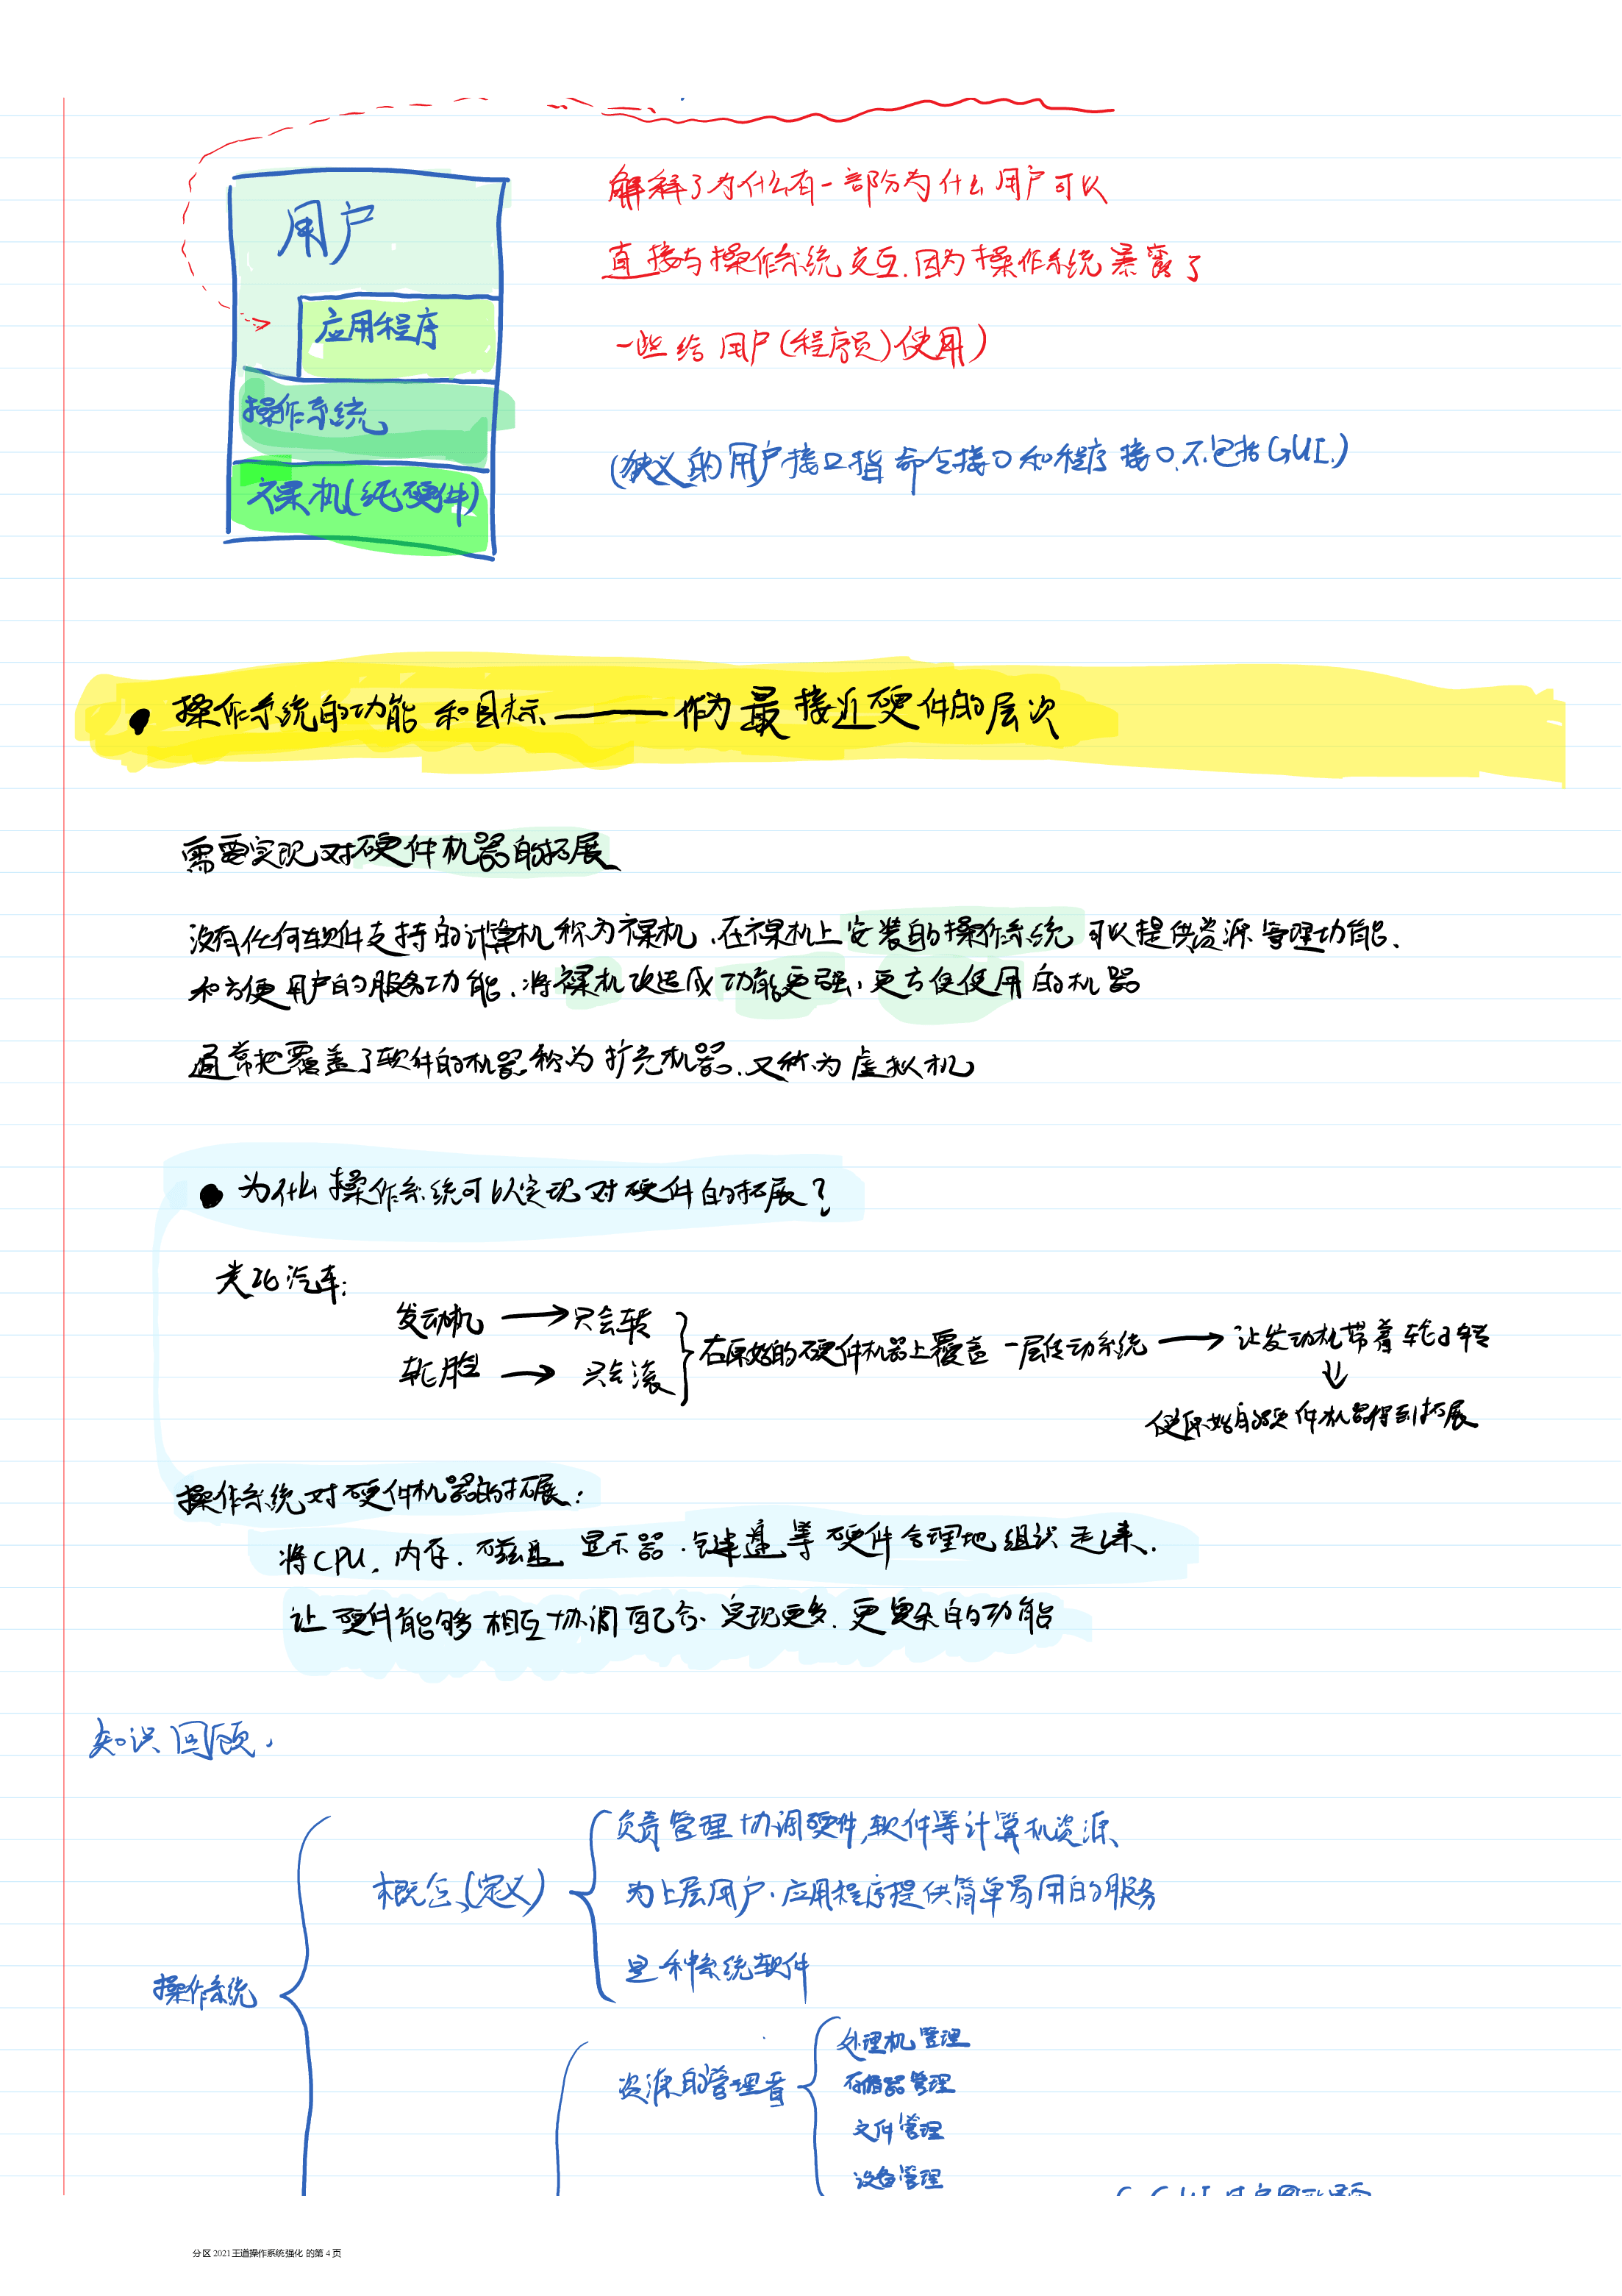 用户
应用程序
操作系统
裸机(纯硬件)
解释了为什么有一部分为什么用户可以
直接与操作系统交互.因为操作系统暴露了
一些给用户(程序员)使用)
(狭义的用户接口指命令接口和程序接口.不包括GUI.)
操作系统的功能和目标——作为最接近硬件的层次
需要实现对硬件机器的拓展
没有任何软件支持的计算机称为裸机.在裸机上安装的操作系统可以提供资源管理功能.
和方便用户的服务功能.将裸机改造成功能更强、更方便使用的机器
通常把覆盖了软件的机器称为扩充机器.又称为虚拟机
为什么操作系统可以实现对硬件的拓展?
类比汽车:
发动机 → 只会转
轮胎 → 只会滚
在原始的硬件机器上覆盖一层传动系统 → 让发动机带着轮子转
使原始的硬件机器得到拓展
操作系统对硬件机器的拓展:
将CPU.内存.磁盘.显示器.键盘等硬件合理地组织起来.
让硬件能够相互协调配合.实现更多.更复杂的功能
知识回顾.
操作系统
概念(定义)
负责管理协调硬件,软件等计算机资源、
为上层用户.应用程序提供简单易用的服务
是种系统软件
资源的管理者
处理机管理
存储器管理
文件管理
设备管理
分区 2021王道操作系统强化 的第 4 页